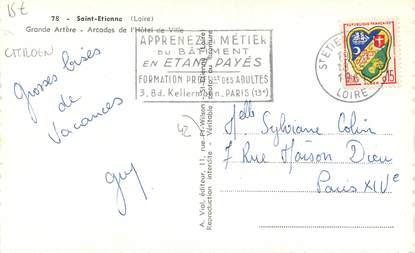 15€
CITROEN
78 - Saint-Etienne (Loire)
Grande Artère - Arcades de l'Hôtel de Ville
APPRENEZ UN MÉTIER
DU BÂTIMENT
EN ETANT PAYÉS
FORMATION PROFlle DES ADULTES
3, Bd. Kellermann, PARIS (13e)
ST ETIENNE
LOIRE
REPUBLIQUE FRANÇAISE
0,15
Grosses bises
de
Vacances
guy
42
A. Vial, éditeur, 11, rue Pr-Wilson - St-Etienne (Loire)
Reproduction interdite - Véritable
Melle Sylviane Colin
7 Rue Maison Dieu
Paris XIVe